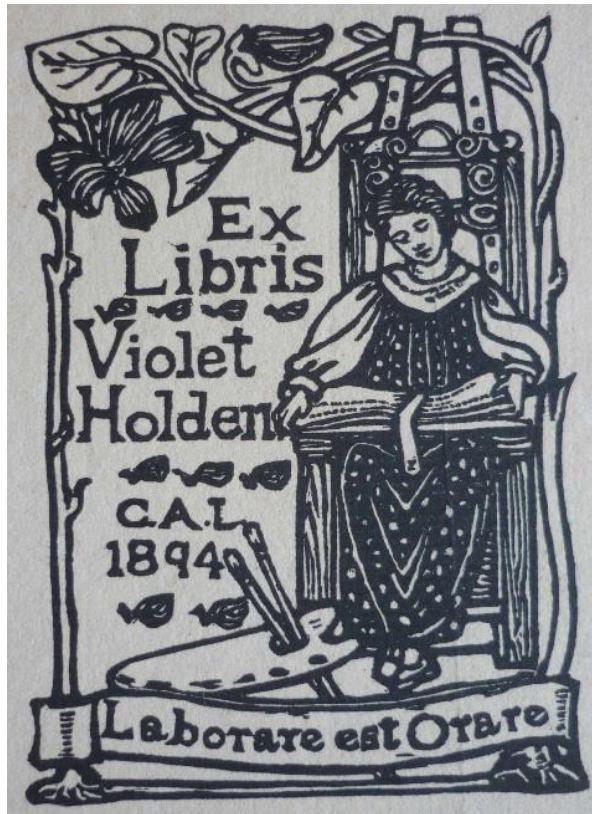 Ex
Libris
Violet
Holden
C.A.L.
1894
Laborare est Orare